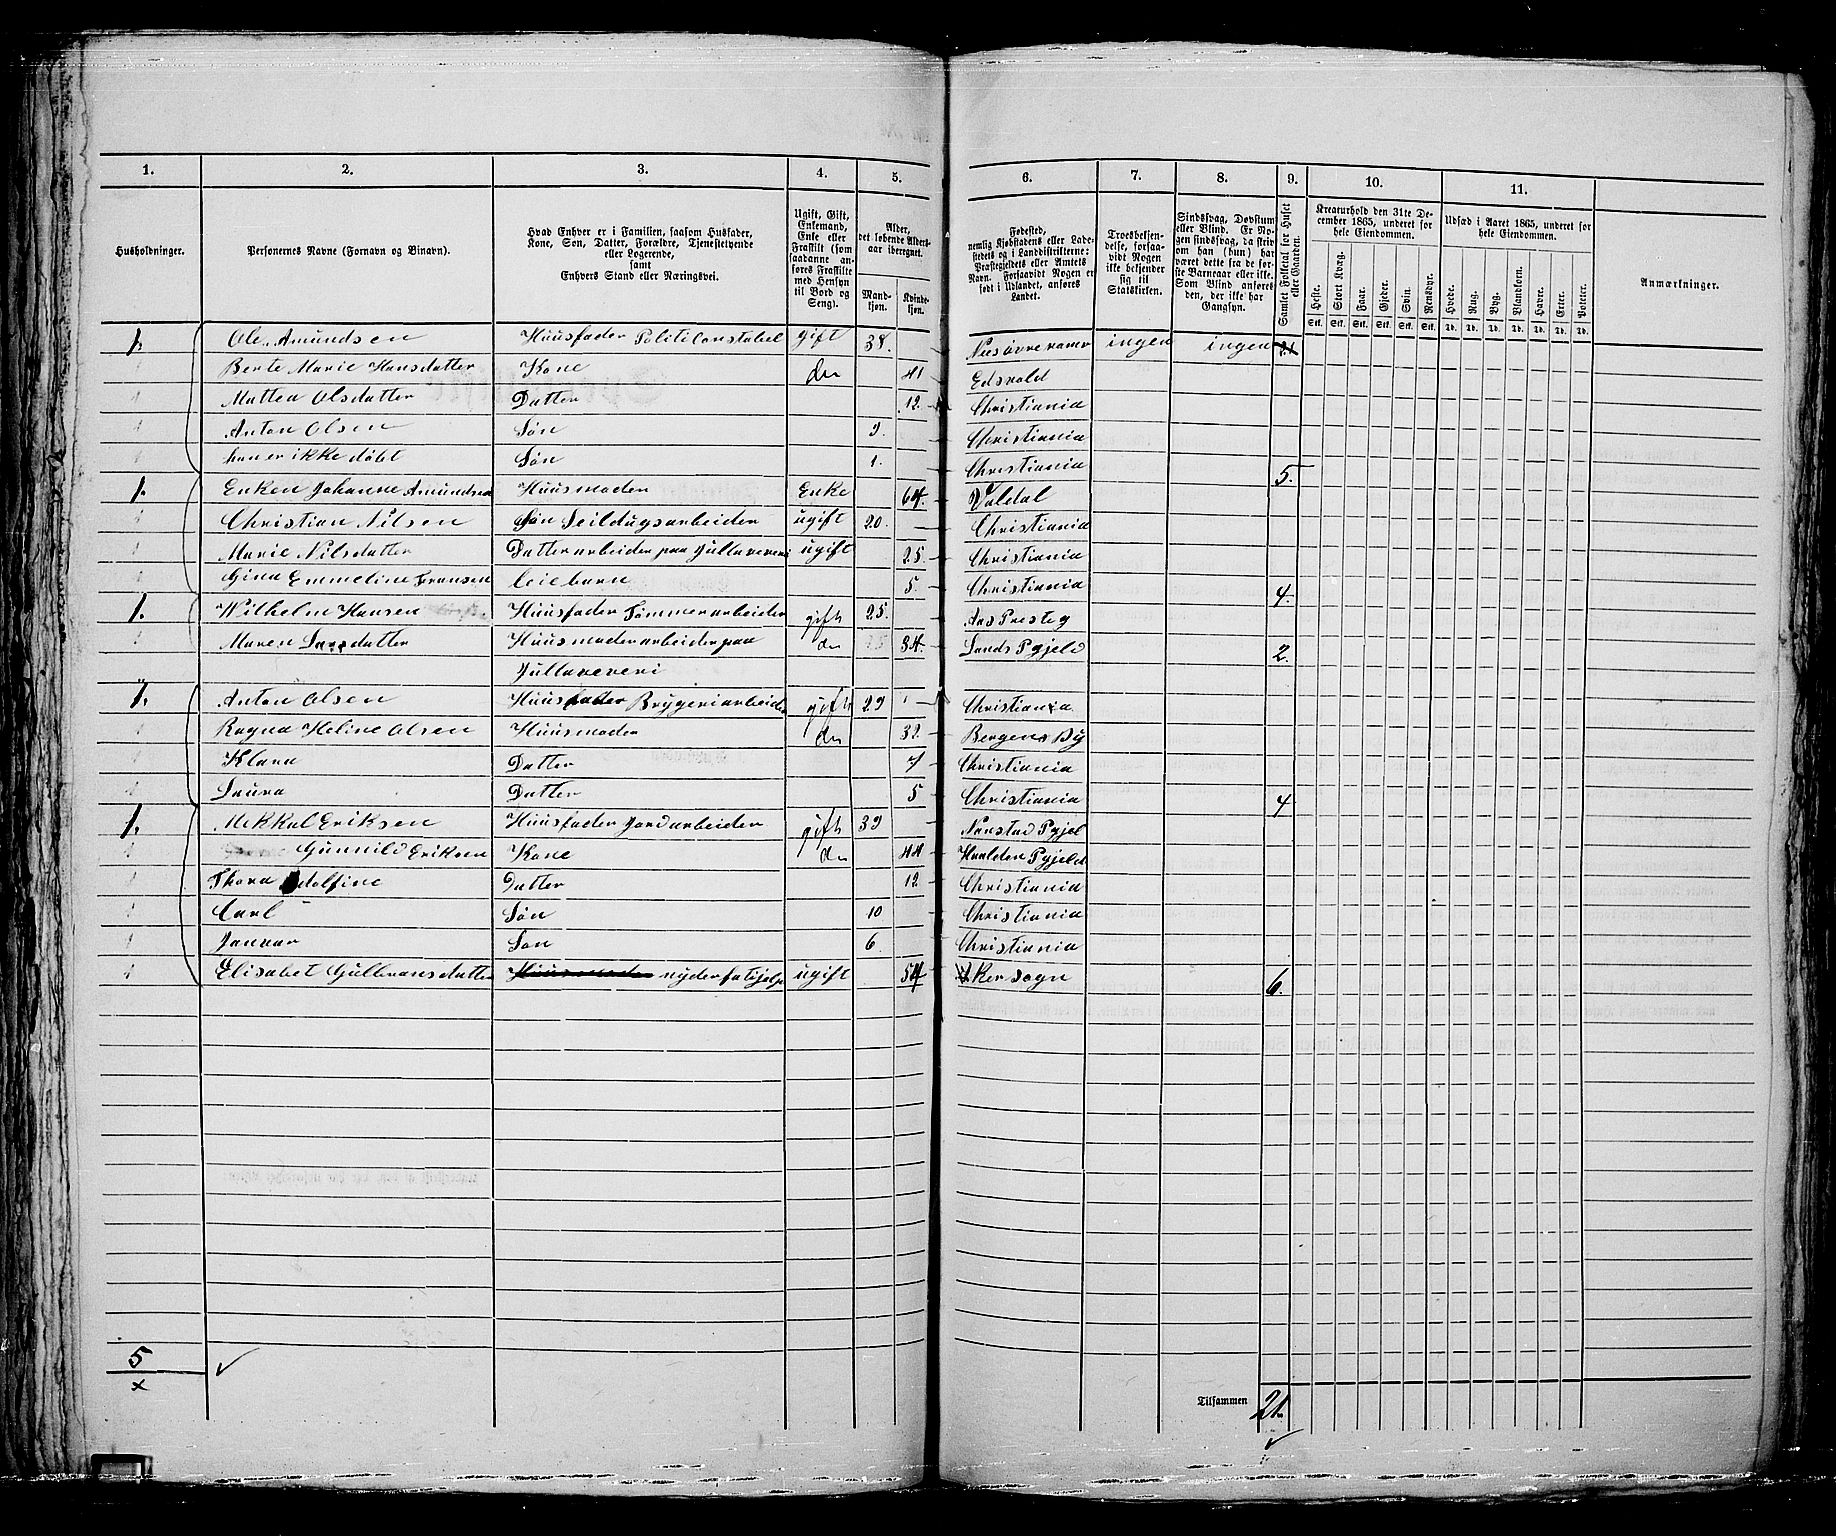 1. 2. 3. 4. 5. 6. 7. 8. 9. 10. 11.
Husholdninger.
Personernes Navne (Fornavn og Binavn).
Hvad Enhver er i Familien, saasom Husfader,
Kone, Søn, Datter, Forældre, Tjenestetyende
eller Logerende,
samt
Enhvers Stand eller Næringsvei.
Ugift, Gift,
Enkemand,
Enke eller
Fraskilt (som
saadanne an-
føres Fraskilte
med Hensyn
til Bord og
Seng).
Alder,
det løbende Alders-
aar iberegnet.
Mand-
kjøn.
Kvinde-
kjøn.
Fødested,
nemlig Kjøbstadens eller Lade-
stedets og i Landdistrikterne:
Præstegjeldets eller Amtets
Navn. Forsaavidt Nogen er
født i Udlandet, anføres
Landet.
Troesbekjen-
delse, forsaa-
vidt Nogen
ikke bekjender
sig til
Statskirken.
Sindssvag, Døvstum
eller Blind. Er No-
gen sindssvag, da skriv
om han (hun) har
været dette fra de før-
ste Barneaar eller ikke.
Som Blind anføres
den, der ikke har
Gangsyn.
Samlet Folketal for Huset
eller Gaarden.
Kreaturhold den 31te De-
cember 1865, underet for
hele Eiendommen.
Heste. Stort Kvæg. Faar. Gjeder. Svin. Rensdyr.
Stk. Stk. Stk. Stk. Stk. Stk.
Udsæd i Aaret 1865, underet for
hele Eiendommen.
Hvede. Rug. Byg. Blandkorn. Havre. Erter. Poteter.
Td. Td. Td. Td. Td. Td. Td.
Anmærkninger.
1. Ole Amundsen Huusfader Politiconstabel gift 38. ingen ingen 21
Berte Marie Hansdatter Kone do 41 Edsvold
Mattea Olsdatter Datter 12. Christiania
Anton Olsen Søn 9. Christiania
han er ikke døbt Søn 1. Christiania 5.
1. Enken Johanne Amundsen Huusmoder Enke 64. Valdal
Christian Nilsen Søn Seildugsarbeider ugift 20. Christiania
Marie Nilsdatter Datter arbeider paa Jullaveveri ugift 25. Christiania
Gina Emmeline Fransen Leiebarn 5. Christiania 4.
1. Wilhelm Hansen Huusfader Tømmerarbeider gift 25. Aas Presteg
Maren Larsdatter Huusmoder arbeider paa do 34. Lands Pgjeld 2.
Jullaveveri
1. Anton Olsen Huusfader Bryggeriarbeider gift 29 Christiania
Ragna Heline Olsen Huusmoder do 32. Bergens By
Klara Datter 7 Christiania
Laura Datter 5 Christiania 4
1. Mikkal Eriksen Huusfader Jordarbeider gift 39 Nanstad Pgjel
Gunnild Eriksen Kone do 44 Haalden Pgjeld
Thora Adolfine Datter 12 Christiania
Carl Søn 10 Christiania
Januar Søn 6. Christiania
Elisabet Gulbransdatter Huusmoder nyder fatighjelp ugift 54 Aker Sogn 6.
5
x
Tilsammen 21.